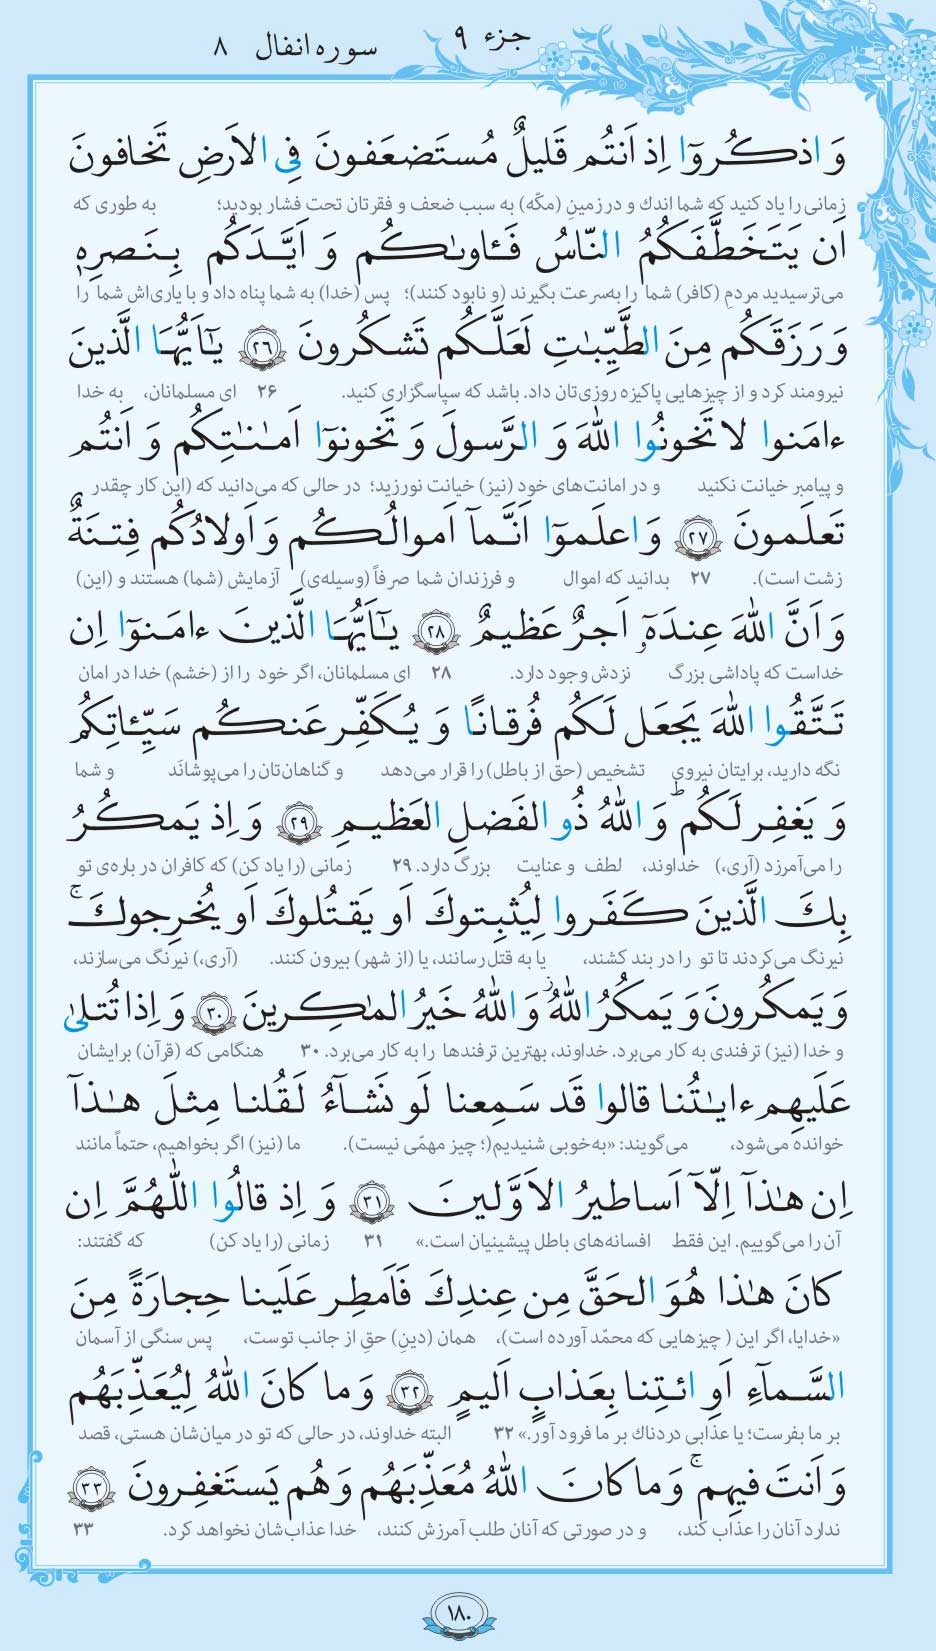 جزء ۹
سوره انفال ۸
وَ اذكُروٓا اِذ اَنتُم قَليلٌ مُستَضعَفونَ فِى الاَرضِ تَخافونَ
زمانی را یاد کنید که شما اندك و در زمینِ (مکّه) به سبب ضعف و فقرتان تحت فشار بودید؛ به طوری که
اَن يَتَخَطَّفَكُمُ النّاسُ فَـٔاوىٰكُم وَ اَيَّدَكُم بِنَصرِهٖ
می‌ترسیدید مردمِ (کافر) شما را به‌سرعت بگیرند (و نابود کنند)؛ پس (خدا) به شما پناه داد و با یاری‌اش شما را
وَ رَزَقَكُم مِنَ الطَّيِّبٰتِ لَعَلَّكُم تَشكُرونَ ۲۶ يٰٓاَيُّهَا الَّذينَ
نیرومند کرد و از چیزهایی پاکیزه روزی‌تان داد. باشد که سپاسگزاری کنید. ۲۶ ای مسلمانان، به خدا
ءامَنوا لا تَخونُوا اللّٰهَ وَ الرَّسولَ وَ تَخونوٓا اَمٰنٰتِكُم وَ اَنتُم
و پیامبر خیانت نکنید و در امانت‌های خود (نیز) خیانت نورزید؛ در حالی که می‌دانید که (این کار چقدر
تَعلَمونَ ۲۷ وَ اعلَموٓا اَنَّمآ اَموالُكُم وَ اَولادُكُم فِتنَةٌ
زشت است). ۲۷ بدانید که اموال و فرزندان شما صرفاً (وسیله‌ی) آزمایش (شما) هستند و (این)
وَ اَنَّ اللّٰهَ عِندَهٗٓ اَجرٌ عَظيمٌ ۲۸ يٰٓاَيُّهَا الَّذينَ ءامَنوٓا اِن
خداست که پاداشی بزرگ نزدش وجود دارد. ۲۸ ای مسلمانان، اگر خود را از (خشم) خدا در امان
تَتَّقُوا اللّٰهَ يَجعَل لَكُم فُرقانًا وَ يُكَفِّر عَنكُم سَيِّـٔاتِكُم
نگه دارید، برایتان نیروی تشخیص (حق از باطل) را قرار می‌دهد و گناهان‌تان را می‌پوشانَد و شما
وَ يَغفِر لَكُم ۗ وَ اللّٰهُ ذُو الفَضلِ العَظيمِ ۲۹ وَ اِذ يَمكُرُ
را می‌آمرزد (آری،) خداوند، لطف و عنایت بزرگ دارد. ۲۹ زمانی (را یاد کن) که کافران در باره‌ی تو
بِكَ الَّذينَ كَفَروا لِيُثبِتوكَ اَو يَقتُلوكَ اَو يُخرِجوكَ ۚ
نیرنگ می‌کردند تا تو را در بند کشند، یا به قتل رسانند، یا (از شهر) بیرون کنند. (آری،) نیرنگ می‌سازند،
وَ يَمكُرونَ وَ يَمكُرُ اللّٰهُ ۖ وَ اللّٰهُ خَيرُ المٰكِرينَ ۳۰ وَ اِذا تُتلىٰ
و خدا (نیز) ترفندی به کار می‌برد. خداوند، بهترین ترفندها را به کار می‌برد. ۳۰ هنگامی که (قرآن) برایشان
عَلَيهِم ءايٰتُنا قالوا قَد سَمِعنا لَو نَشآءُ لَقُلنا مِثلَ هٰذآ
خوانده می‌شود، می‌گویند: «به‌خوبی شنیدیم(؛ چیز مهمّی نیست). ما (نیز) اگر بخواهیم، حتماً مانند
اِن هٰذآ اِلّآ اَساطيرُ الاَوَّلينَ ۳۱ وَ اِذ قالُوا اللّٰهُمَّ اِن
آن را می‌گوییم. این فقط افسانه‌های باطل پیشینیان است.» ۳۱ زمانی (را یاد کن) که گفتند:
كانَ هٰذا هُوَ الحَقَّ مِن عِندِكَ فَاَمطِر عَلَينا حِجارَةً مِنَ
«خدایا، اگر این ( چیزهایی که محمّد آورده است)، همان (دینِ) حقِ از جانب توست، پس سنگی از آسمان
السَّمآءِ اَوِ ائتِنا بِعَذابٍ اَليمٍ ۳۲ وَ ما كانَ اللّٰهُ لِيُعَذِّبَهُم
بر ما بفرست؛ یا عذابی دردناك بر ما فرود آور.» ۳۲ البته خداوند، در حالی که تو در میان‌شان هستی، قصد
وَ اَنتَ فيهِم ۚ وَ ما كانَ اللّٰهُ مُعَذِّبَهُم وَ هُم يَستَغفِرونَ ۳۳
ندارد آنان را عذاب کند، و در صورتی که آنان طلب آمرزش کنند، خدا عذاب‌شان نخواهد کرد. ۳۳
۱۸۰